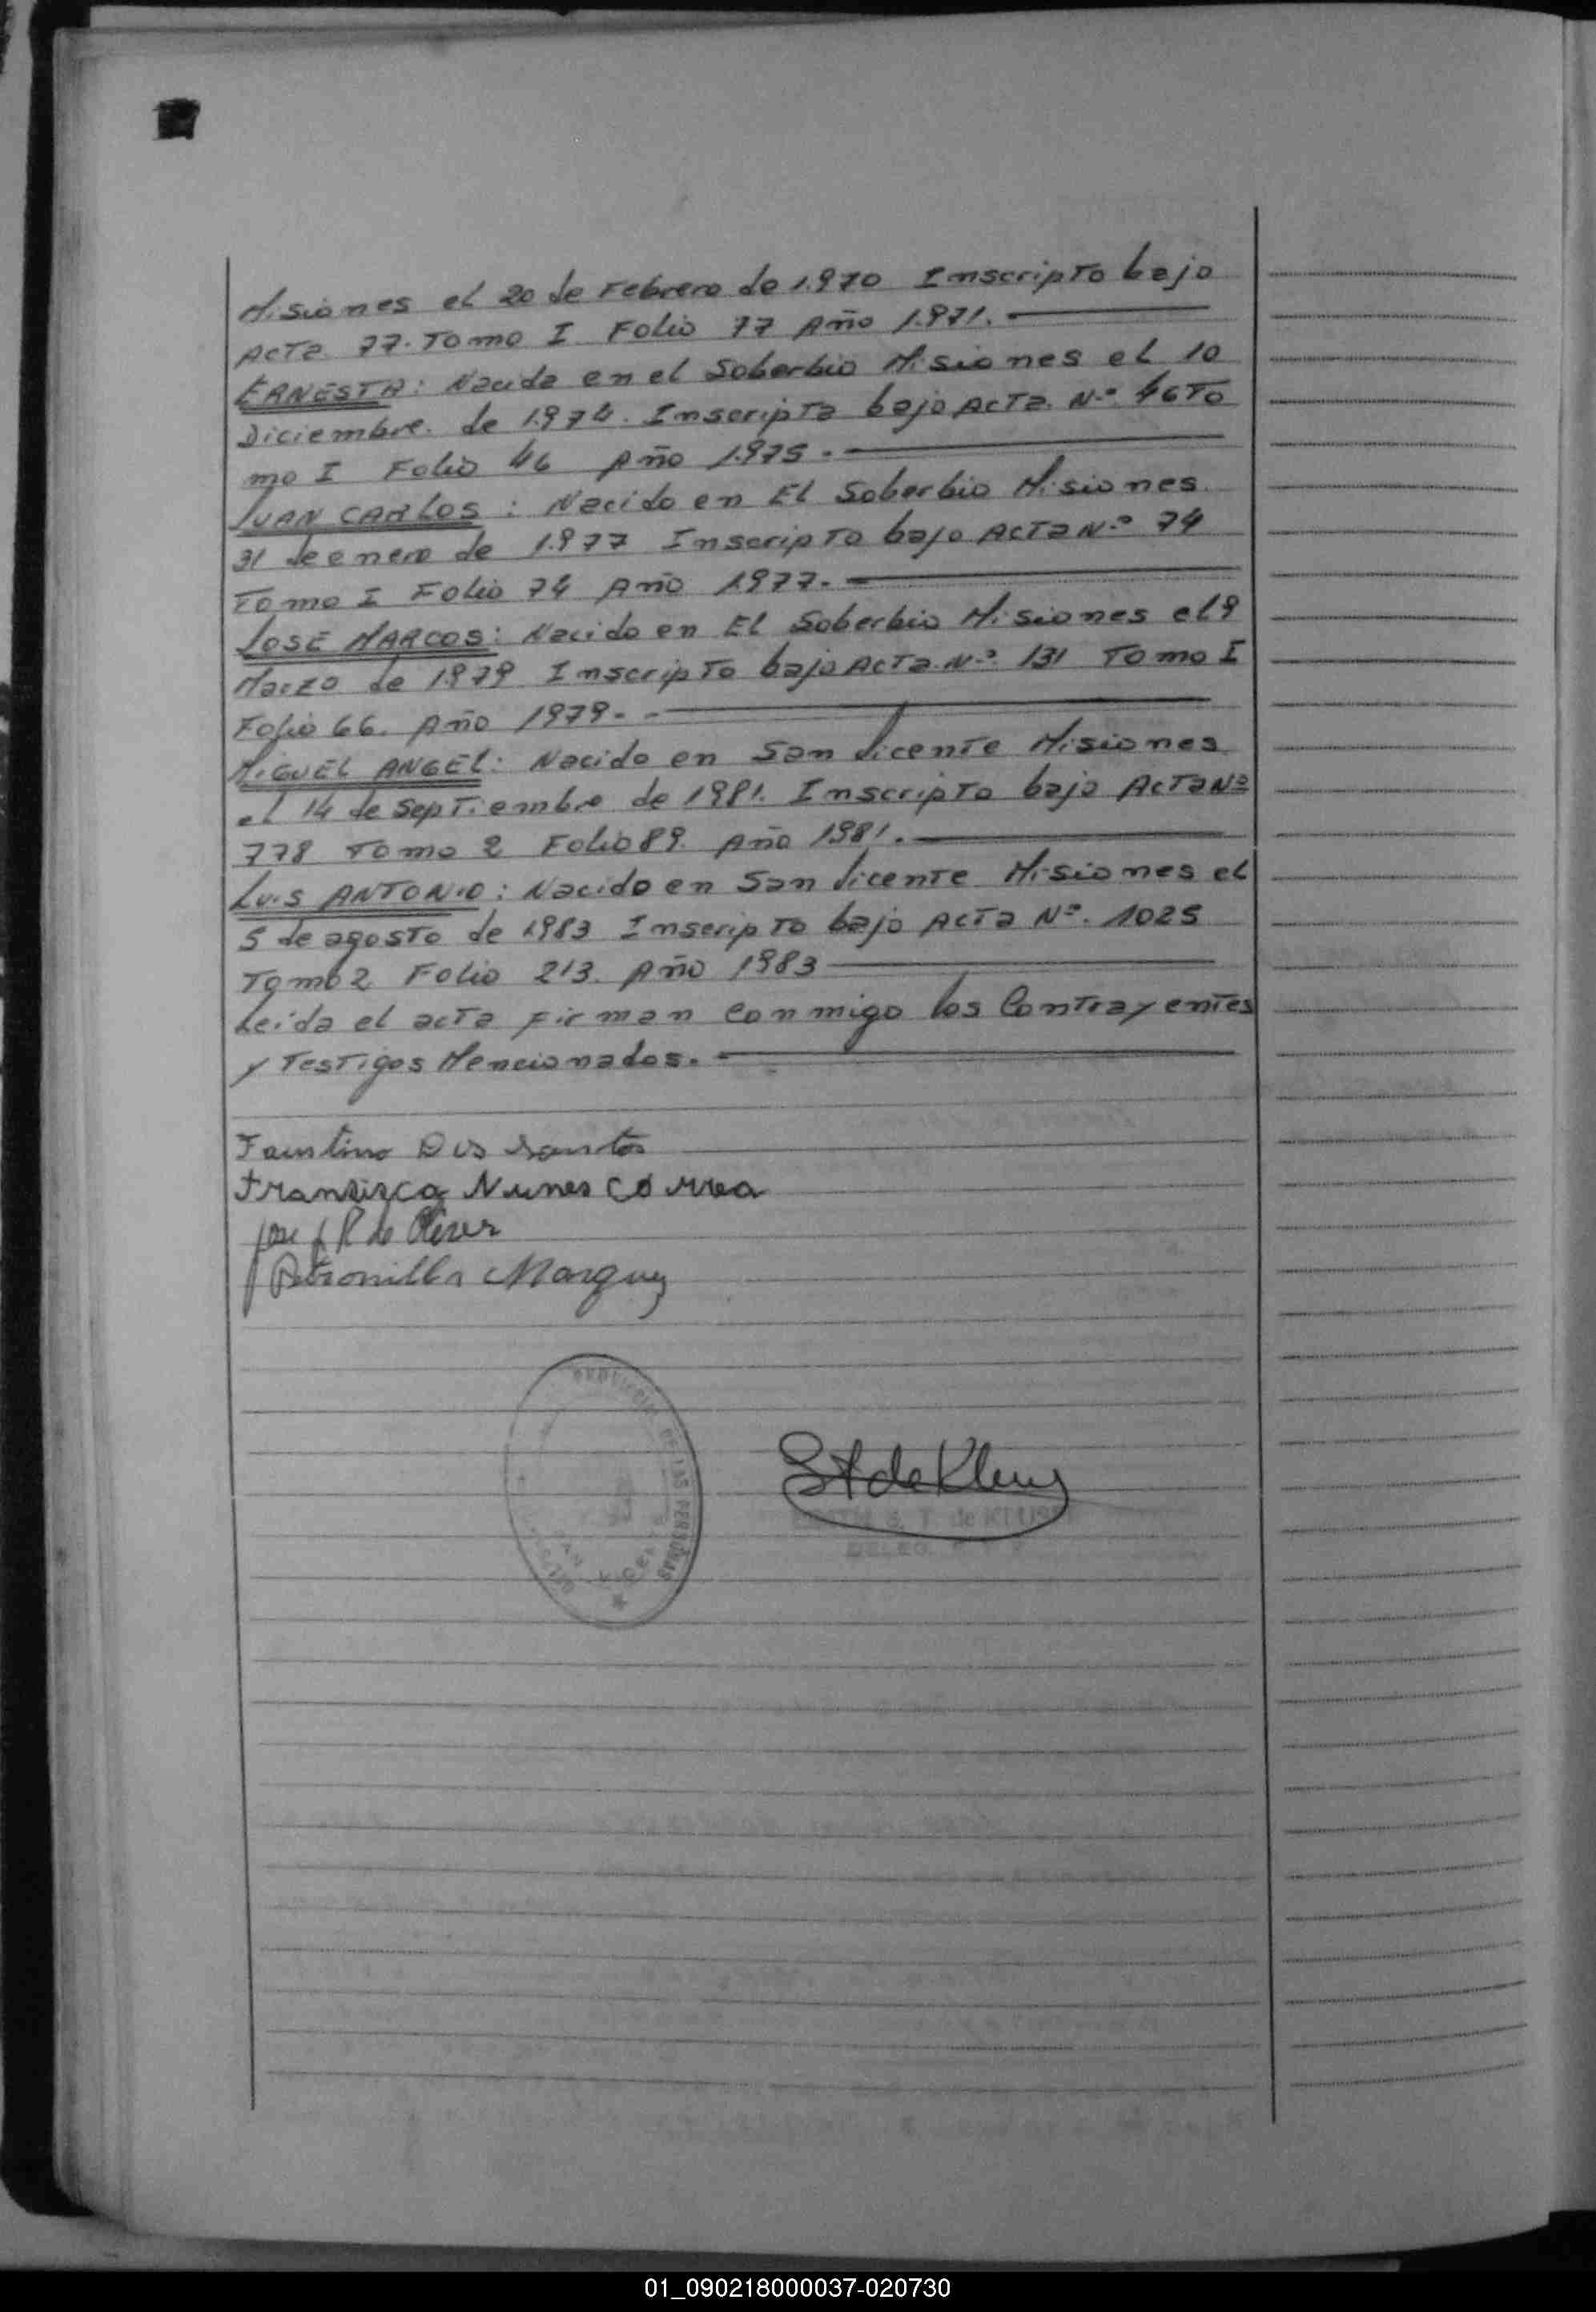 Misiones el 20 de Febrero de 1.970 Inscripto bajo
Acta 77. Tomo I Folio 77 Año 1.971.
ERNESTA: Nacida en el Soberbio Misiones el 10
Diciembre. de 1.974. Inscripta bajo Acta. Nº 46 To
mo I Folio 46 Año 1.975.
JUAN CARLOS: Nacido en El Soberbio Misiones
31 de enero de 1.977 Inscripto bajo Acta Nº 74
Tomo I Folio 74 Año 1977.
JOSE MARCOS: Nacido en El Soberbio Misiones el 9
Marzo de 1.979 Inscripto bajo Acta. Nº 131 Tomo I
Folio 66. Año 1979.
MIGUEL ANGEL: Nacido en San Vicente Misiones
el 14 de Septiembre de 1981. Inscripto bajo Acta Nº
778 Tomo 2 Folio 89. Año 1981.
LUIS ANTONIO: Nacido en San Vicente Misiones el
5 de agosto de 1983 Inscripto bajo Acta Nº. 1025
Tomo 2 Folio 213. Año 1983
Leida el acta firman conmigo los Contrayentes
y Testigos Mencionados.
Faustino Dos Santos
Fransisca Nunes Correa
Jose R de
Petronilla Marquez
DE LAS PERSONAS
S. T. de
DELEG.
01_090218000037-020730